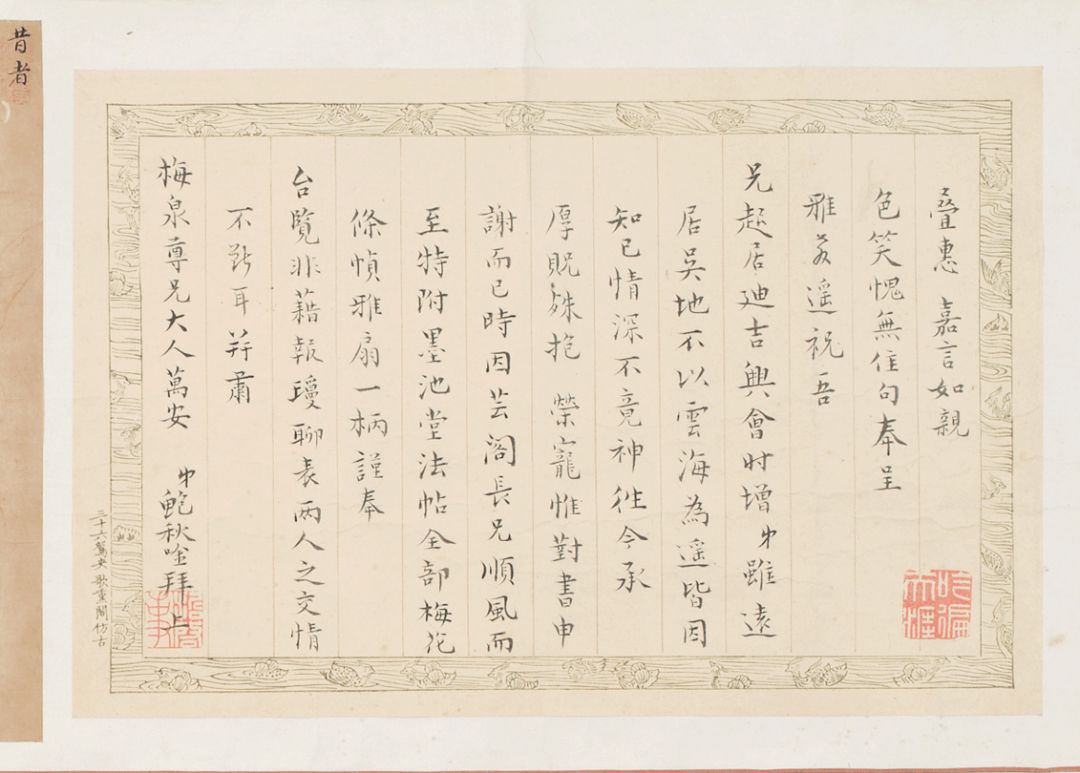 叠惠 嘉言如親
色笑愧無佳句奉呈
雅益遥祝吾
兄超居迪吉興會时增弟雖遠
居吳地不以雲海為遥皆因
知己情深不竟神往今承
厚貺殊抱 榮寵惟對書申
謝而已時因芸閣長兄順風而
至特附墨池堂法帖全部梅花
條幀雅扇一柄謹奉
台覽非藉報瓊聊表兩人之交情
不斷耳并肅
梅泉尊兄大人萬安 弟鮑秋吟拜上
三十六鴛央歌董閣仿古
昔者